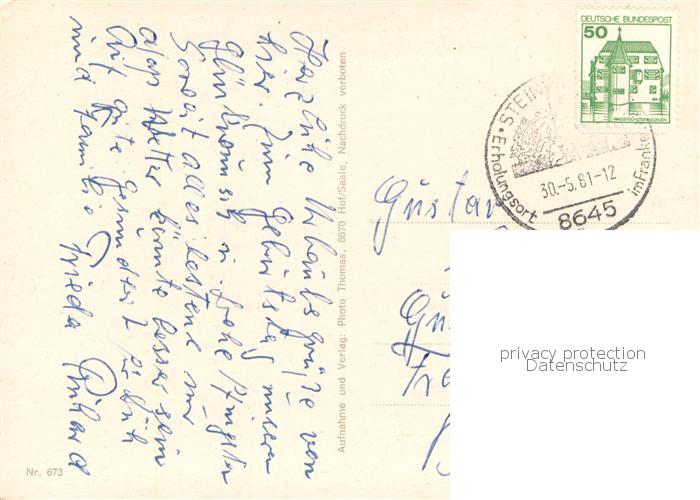 Herzliche Urlaubsgrüße von
hier. Zum Geburtstag unseren
Glückwunsch u. frohe Pfingsten
Soweit alles bestens nur
das Wetter könnte besser sein
Auf gute Gesundheit für Dich
und Familie Frieda
Aufnahme und Verlag: Photo Thomas, 8670 Hof/Saale, Nachdruck verboten
Nr. 673
DEUTSCHE BUNDESPOST
50
STEIN
Erholungsort
im Franken
30.-5.81-12
8645
Gustav
privacy protection
Datenschutz